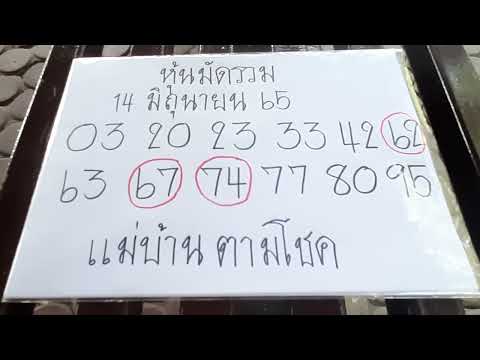 หุ้นมัดรวม
14 มิถุนายน 65
03 20 23 33 42 62
63 67 74 77 80 95
แม่บ้าน ตามโชค